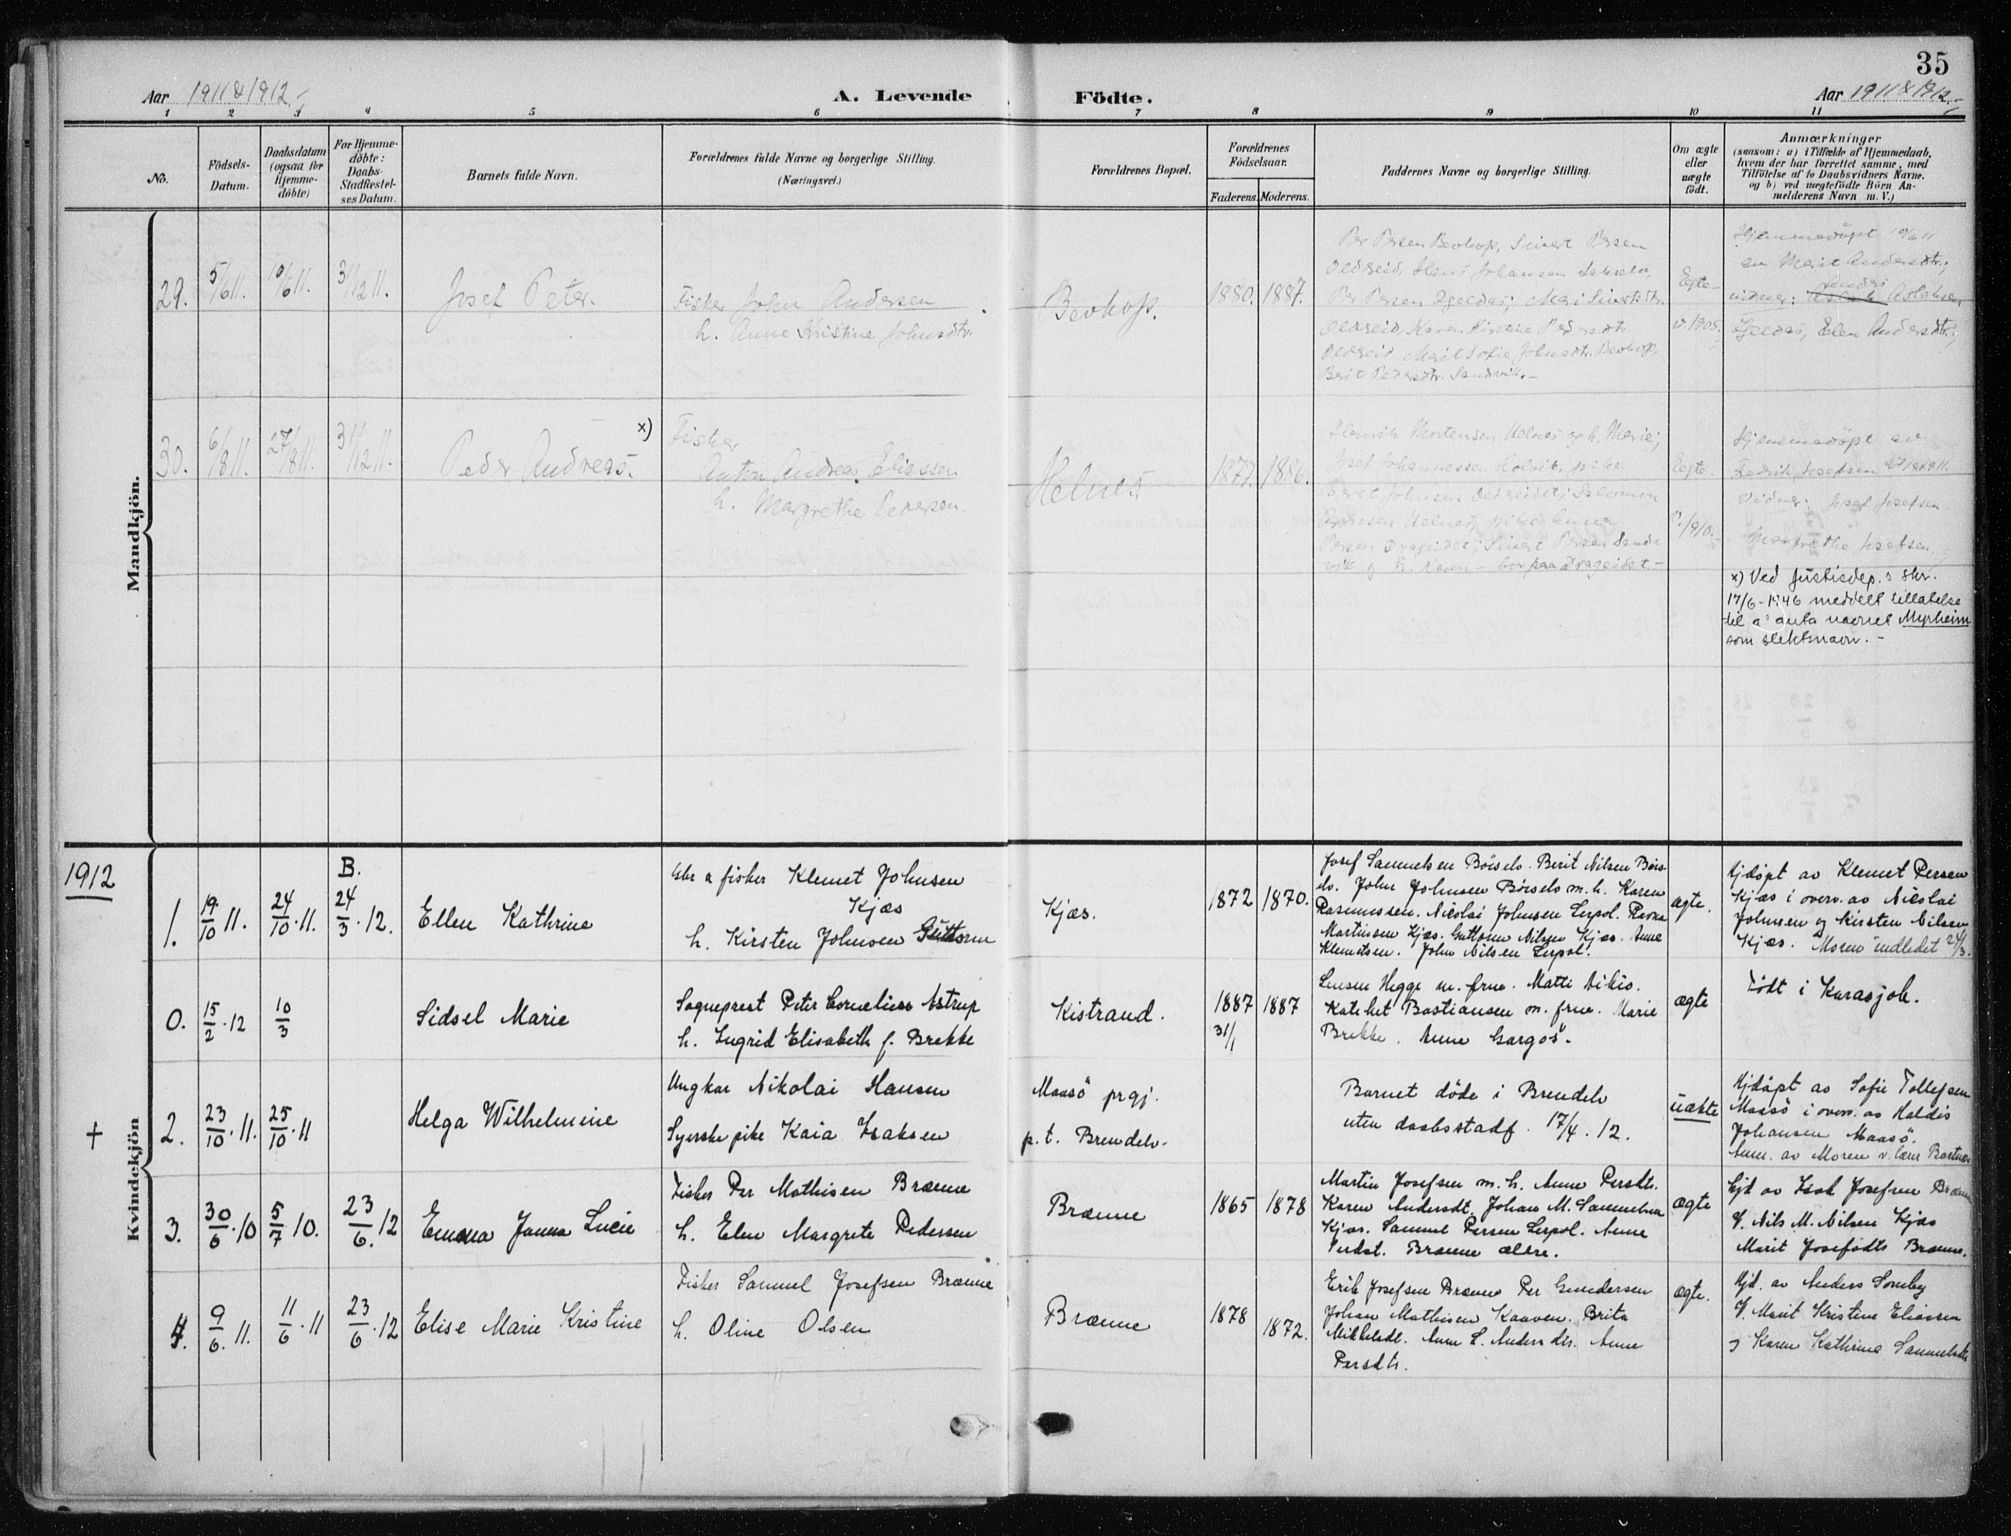 35
Aar 1911 & 1912.
A. Levende Födte.
Aar 1911 & 1912.
1 2 3 4 5 6 7 8 9 10 11
No.
Födsels-
Datum.
Daabsdatum
(ogsaa for
Hjemme-
döbte)
For Hjemme-
döbte:
Daabs-
Stadfestel-
ses Datum.
Barnets fulde Navn.
Forældrenes fulde Navne og borgerlige Stilling.
(Næringsvei.)
Forældrenes Bopæl.
Forældrenes
Födselsaar.
Faderens. Moderens.
Faddernes Navne og borgerlige Stilling.
Om ægte
eller
uægte
födt.
Anmærkninger
(saasom: a) i Tilfælde af Hjemmedaab,
hvem der har forrettet samme, med
Tilföielse af to Daabsvidners Navne.
og b) ved uægtefödte Börn An-
melderens Navn m. V.)
Mandkjön.
29. 5/6 11. 10/6 11. 31/12 11. Josef Peter.
Fisker John Andersen
h. Anne Kristine Johnsdtr.
Bevkop.
1880. 1887.
Per Persen Bevkop, Sivert Persen
Oldereid, Johansen
Per Persen Mari Sivertdtr.
Oldereid, Karen Kirstine Pedersdtr.
Oldereid, Marit Sofie Johnsdtr. Bevkop,
Berit Pedersdtr. Sandvik.-
Egte-
v. 1905.
Hjemmedöpt 10/6 11
av Marit Andersdtr.;
Anders
vidner: Aslaksen
Elen Andersdtr.;
30. 6/8 11. 27/8 11. 31/12 11. Peder Andreas. x)
Fisker
Anton Andreas Eliassen
h. Margrethe Pedersen.
Helnes
1877. 1886.
Henrik Mortensen Helnes og h. Marie;
Josef Johannessen pike
Beret Johnsen Oldereidet; Salomon
Helnes, pike Anna
Persen Drageidet; Sivert Persen Sand-
vik og h. Karen - bor paa Drageidet.-
Egte-
1910.
Hjemmedöpt av
Josefsen 27/8 1911.
Vidner: Josef Josefsen
Margrethe Josefsen.
x) Ved Justisdep.s skr.
17/6-1946 meddelt tillatelse
til å anta navnet Myrheim
som slektsnavn.-
1912
Kvindekjön
B.
1. 19/10 11. 24/10 . 11. 24/3 . 12. Ellen Kathrine
Gbr a fisker Klemet Johnsen
Kjæs
h. Kirsten Johnsen Guttorm
Kjæs.
1872 1870.
Josef Samuelsen Börselv. Berit Nilsen Börs-
elv. John Johnsen Börselv m. h. Karen
Rasmussen. Nicolai Johnsen Lerpol. Ravna
Martinsen Kjæs. Guttorm Nilsen Kjæs. Anne
Klemetsen. John Nilsen Lerpol.
ægte.
Hjdöpt av Klemet Persen
Kjæs i overv. av Nicolai
Johnsen og Kirsten Nilsen
Kjæs. Moren indledet 24/3.
0. 15/2 . 12 10/3 Sidsel Marie
Sogneprest Peter Cornelius Astrup
h. Ingrid Elisabeth f. Brekke
Kistrand.
1887 1887
31/1
Lensm Hegge m. frue. Matti Aikio.
Kateket Bastiansen m. frue. Marie
Brekke. Anne Gargo.
ægte
Födt i Karasjok.
+ 2. 23/10 . 11. 25/10 . 11 Helga Wilhelmine
Ungkar Nikolai Hansen
Syerske pike Kaia Isaksen
Maasö prgj.
p.t. Brendelv.
Barnet döde i Brendelv
uten daabsstadf. 17/4 . 12.
uækte
Hjdöpt av Sofie Tollefsen
Maasö i overv. av Haldis
Johansen Maasö.
Anm. av Moren v. lærer
3. 30/6 . 10 5/7 10. 23/6 . 12 Emma Janna Lucie
Fisker Per Mathisen Brænne
h. Elen Margrete Pedersen
Brænne
1865 1878
Martin Josefsen m. h. Anne Persdt.
Karen Andersdt. Johan M. Samuelsen
Kjæs. Samuel Persen Lerpol. Anne
Persdt. Brænne ældre.
ægte
Hjd av Isak Josefsen Brænne
V. Nils M. Nilsen Kjæs
Marit Josefsdtr Brænne.
4. 9/6 . 11. 11/6 . 11 23/6 . 12 Elise Marie Kristine
Fisker Samuel Josefsen Brænne
h. Oline Olsen
Brænne
1878 1872.
Erik Josefsen Brænne Per Gundersen
Johan Mathisen Kaaven. Brita
Mikkelsdt. Anne L. Andersdtr. Anne
Persdtr.
ægte.
Hjd. av Anders Somby
V. Marit Kristine Eliassen
og Karen Kathrine Samuelsdtr